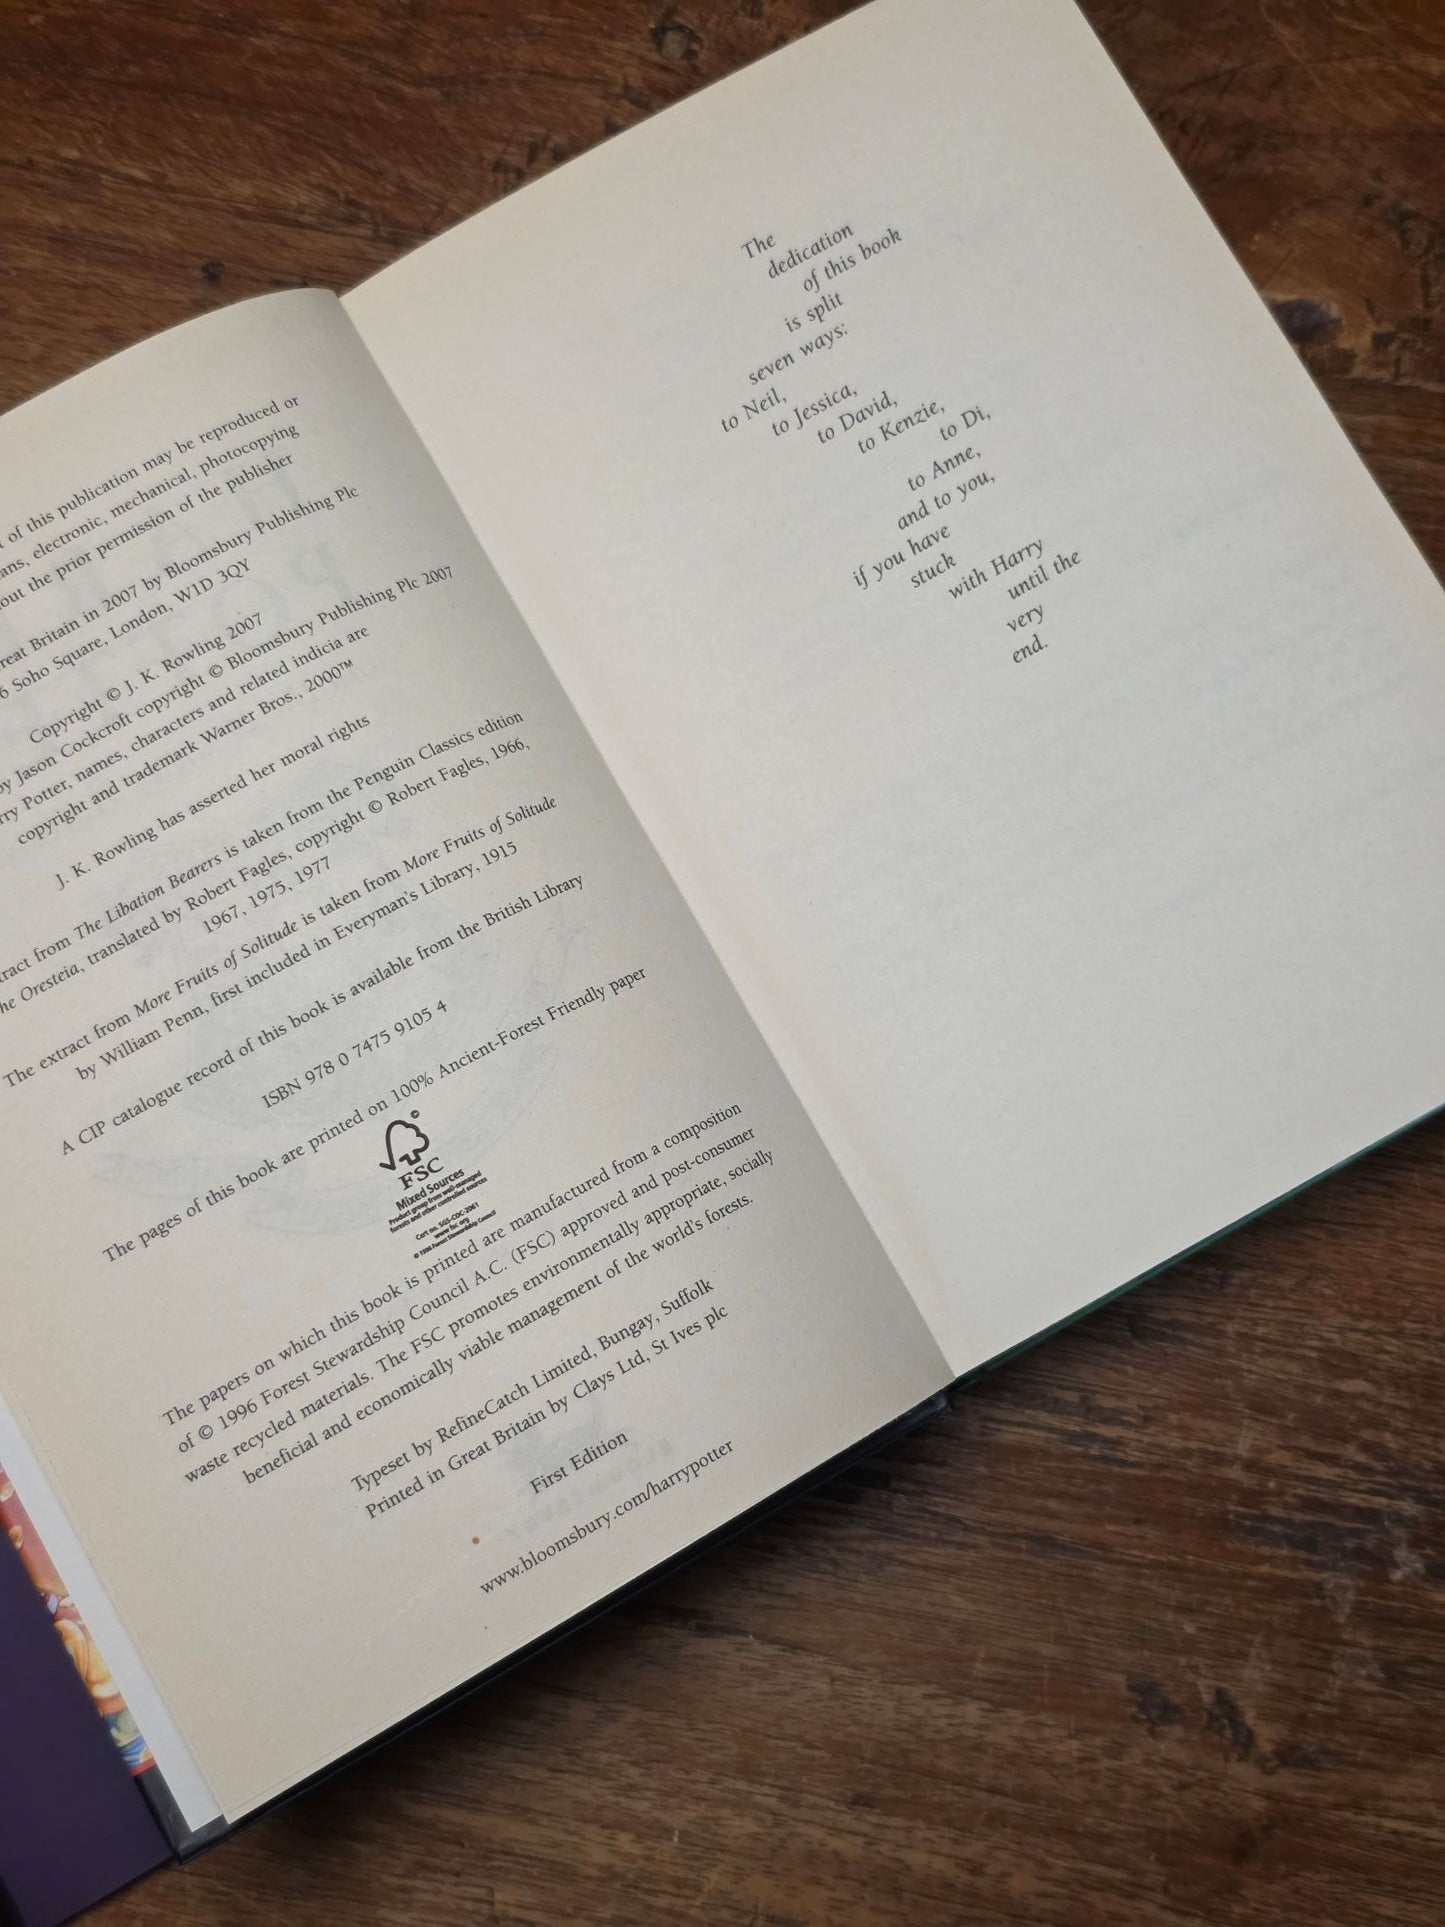 of this publication may be reproduced or
electronic, mechanical, photocopying
the prior permission of the publisher
Britain in 2007 by Bloomsbury Publishing Plc
Soho Square, London, W1D 3QY
Copyright © J. K. Rowling 2007
by Jason Cockcroft copyright © Bloomsbury Publishing Plc 2007
Potter, names, characters and related indicia are
copyright and trademark Warner Bros., 2000™
J. K. Rowling has asserted her moral rights
from The Libation Bearers is taken from the Penguin Classics edition
Oresteia, translated by Robert Fagles, copyright © Robert Fagles, 1966,
1967, 1975, 1977
The extract from More Fruits of Solitude is taken from More Fruits of Solitude
by William Penn, first included in Everyman's Library, 1915
A CIP catalogue record of this book is available from the British Library
ISBN 978 0 7475 9105 4
The pages of this book are printed on 100% Ancient-Forest Friendly paper
FSC
Mixed Sources
Product group from well-managed
forests and other controlled sources
Cert no. SGS-COC-2061
www.fsc.org
© 1996 Forest Stewardship Council
The papers on which this book is printed are manufactured from a composition
of © 1996 Forest Stewardship Council A.C. (FSC) approved and post-consumer
waste recycled materials. The FSC promotes environmentally appropriate, socially
beneficial and economically viable management of the world's forests.
Typeset by RefineCatch Limited, Bungay, Suffolk
Printed in Great Britain by Clays Ltd, St Ives plc
First Edition
www.bloomsbury.com/harrypotter
The
dedication
of this book
is split
seven ways:
to Neil,
to Jessica,
to David,
to Kenzie,
to Di,
to Anne,
and to you,
if you have
stuck
with Harry
until the
very
end.